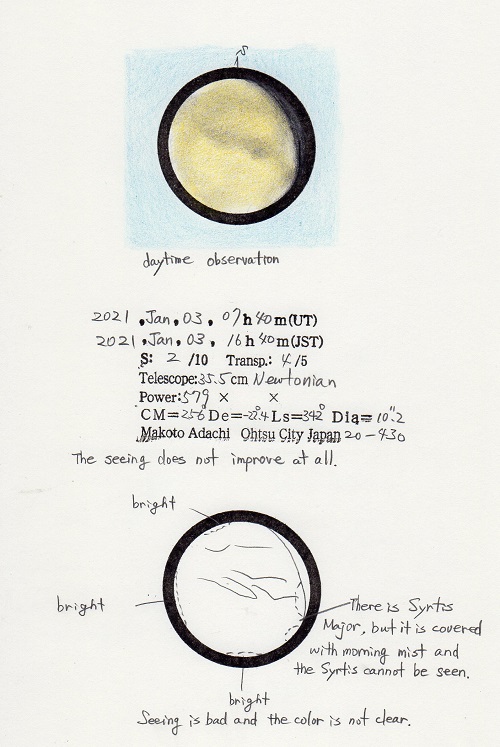 S
daytime observation
2021 , Jan, 03, 07h 40m(UT)
2021, Jan, 03, 16h 40m(JST)
S: 2 /10 Transp.: 4/5
Telescope:35.5cm Newtonian
Power:579 × ×
CM=256° De=-22.4 Ls=342° Dia=10".2
Makoto Adachi Ohtsu City Japan 20-430
The seeing does not improve at all.
bright
bright
There is Syrtis
Major, but it is covered
with morning mist and
the Syrtis cannot be seen.
bright
Seeing is bad and the color is not clear.